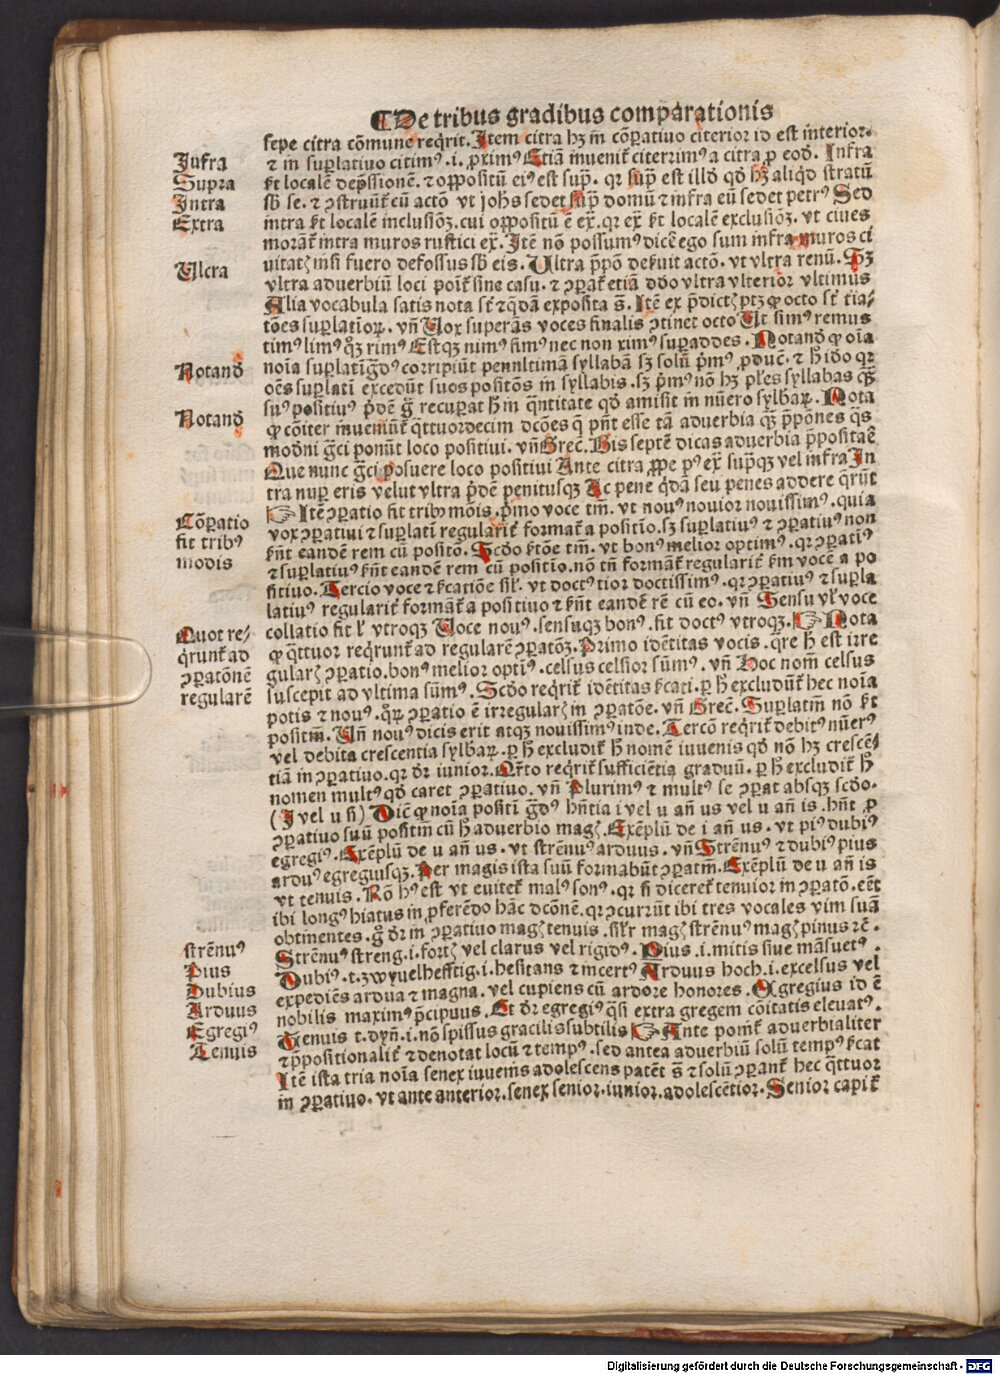 De tribus gradibus comparationis
sepe citra cōmune reqrit. Item citra hꝫ in cōꝑatiuo citerior id est interior.
Infra
⁊ in suꝑlatiuo citimꝰ .i. ꝓximꝰ Etiā inuenit̄ citerrimꝰ a citra ꝓ eod. Infra
Supra
est supͣ. qr supͣ est illd qd hꝫ aliqd stratū
Intra
sb se. ⁊ ꝯstruūt̄ cū actō vt johs sedet supͣ domū ⁊ infra eū sedet petrꝰ Sed
Extra
intra localē inclusiōꝫ. cui oppositū ē exͣ. qr exͣ localē exclusiōꝫ. vt ciues
morāt̄ intra muros rustici exͣ. Itē nō possumꝰ dicē ego sum infra muros ci
Ulcra
nisi fuero defossus sb eis. Ultra p̄pō deẜuit actō. vt vltra renū. Sꝫ
vltra aduerbiū loci poīt̄ sine casu. ⁊ ꝯꝑat̄ etiā dd̄o vltra vlterior vltimus
Alia vocabula satis nota st̄ ⁊ qdā exposita s̄. Itē ex p̄dictꝫ ptꝫ ꝙ octo st̄
tōes suꝑlatiorꝝ. vn̄ Vox superās voces finalis ꝯtinet octo Ut simꝰ remus
timꝰ limꝰ qꝫ rimꝰ Estqꝫ nimꝰ simꝰ nec non ximꝰ suꝑaddes. Notand ꝙ oīa
Notand
noīa corripiūt penultimā syllabā sꝫ solū p̄mꝰ ꝓduc̄. ⁊ h̄ ido qr
oēs suꝑlatī excedūt suos positōs in syllabis. sꝫ p̄mꝰ nō hꝫ pl̄es syllabas qꝫ
suꝰ positiuꝰ p̄dē recuꝑat h̄ in qntitate qd amisit in nūero sylbaꝝ. Nota
Notand
ꝙ cōiter inueniūt̄ qttuordecim dcōes q pn̄t esse tā aduerbia qꝫ p̄pōnes qs
mod̄ni ponūt loco positiui. vn̄ Grec̄. Bis septē dicas aduerbia p̄positaē
Que nunc posuere loco positiui Ante citra ꝓpe pꝰ exͣ supͣqꝫ vel infra In
tra nuꝑ eris velut vltra p̄dē penitusqꝫ Ac pene qdā seu penes addere qrūt
Cōꝑatio
☞ Itē ꝯꝑatio fit tribꝰ mōis. p̄mo voce tm̄. vt nouꝰ nouior nouissimꝰ. quia
fit tribꝰ
vox ꝯꝑatiui ⁊ suꝑlatī regularit̄ format̄ a positīo. sꝫ suꝑlatiuꝰ ⁊ ꝯꝑatiuꝰ non
modis
eandē rem cū positō. Scdo tm̄. vt bonꝰ melior optimꝰ. qr ꝯꝑatīꝰ
⁊ suꝑlatiuꝰ eandē rem cū positio. nō tn̄ formāt̄ regularit̄ voce a po
sitiuo. Tercio voce ⁊ sil̄r. vt doctꝰ tior doctissimꝰ. qr ꝯꝑatiuꝰ ⁊ suꝑla
latiuꝰ regularit̄ formāt̄ a positiuo ⁊ eandē rē cū eo. vn̄ Sensu vl̄ voce
Quot re⸗
collatio fit l̄ vtroqꝫ Voce nouꝰ. sensuqꝫ bonꝰ. fit doctꝰ vtroqꝫ. ☞ Nota
qrunt̄ ad
ꝙ qttuor reqrunt̄ ad regularē ꝯꝑatōꝫ. Primo idētitas vocis. qre h̄ est irre
ꝯꝑatōnē
gularꝫ ꝯꝑatio. bonꝰ melior optīꝰ. celsus celsior sūmꝰ. vn̄ Hoc nom̄ celsus
regularē
suscepit ad vltima sūmꝰ. Scdo reqrit̄ idētitas . ꝑ h̄ excludūt̄ hec noīa
potis ⁊ nouꝰ. ꝯꝑatio ē irregularꝫ in ꝯꝑatōe. vn̄ Grec̄. Suꝑlatm̄ nō
positm̄. Un̄ nouꝰ dicis erit atqꝫ nouissimꝰ inde. Tercō reqrit̄ debitꝰ nūerꝰ
vel debita crescentia sylbaꝝ. ꝑ h̄ excludit̄ h̄ nomē iuuenis qd nō hꝫ crescē⸗
tiā in ꝯꝑatiuo. qr dr̄ iunior. Qrto reqrit̄ sufficiētia graduū. ꝑ h̄ excludit̄ h̄
nomen multꝰ qd caret ꝯꝑatiuo. vn̄ Plurimꝰ ⁊ multꝰ se ꝯꝑat absqꝫ scdo.
(I vel u si) Dic̄ ꝙ noīa positī gd̄ꝰ hn̄tia i vel u an̄ us vel u an̄ is. hn̄t ꝓ
ꝯꝑatiuo suū positm̄ cū h̄ aduerbio magꝫ. Exēplū de i an̄ us. vt piꝰ dubiꝰ
egregiꝰ. Exēplū de u an̄ us. vt strēnuꝰ arduus. vn̄ Strēnuꝰ ⁊ dubiꝰ pius
arduꝰ egregiusqꝫ. Per magis ista suū formabūt ꝯꝑatm̄. Exēplū de u an̄ is
vt tenuis. Rō hꝰ est vt euitet̄ malꝰ sonꝰ. qr si diceret̄ tenuior in ꝯꝑatō. eēt
ibi longꝰ hiatus in ꝓferēdo hāc dcōnē. qr ꝯcurrūt ibi tres vocales vim suā
obtinentes. g̊ dr̄ in ꝯꝑatiuo magꝫ tenuis. sil̄r magꝫ strēnuꝰ magꝫ pius ⁊c̄.
strēnuꝰ
Strēnuꝰ streng .i. fortꝫ vel clarus vel rigidꝰ. Pius .i. mitis siue māsuetꝰ.
Pius
Dubiꝰ .t. zwyuelhefftig .i. hesitans ⁊ incertꝰ Arduus hoch .i. excelsus vel
Dubius
expediēs ardua ⁊ magna. vel cupiens cū ardore honores. Egregius id ē
Arduus
nobilis maximꝰ p̄cipuus. Et dr̄ egregiꝰ qsi extra gregem cōitatis eleuatꝰ.
Egregiꝰ
Tenuis t. dyn̄ .i. nō spissus gracilis subtilis ☞ Ante aduerbialiter
Tenuis
⁊ p̄positionalit̄ ⁊ denotat locū ⁊ tempꝰ. sed antea aduerbiū solū tempꝰ
Itē ista tria noīa senex iuuenis adolescens patēt s̄ ⁊ solū ꝯꝑant̄ hec qttuor
in ꝯꝑatiuo. vt ante anterior. senex senior. iunior. adolescētior. Senior capit̄
Digitalisierung gefördert durch die Deutsche Forschungsgemeinschaft - DFG